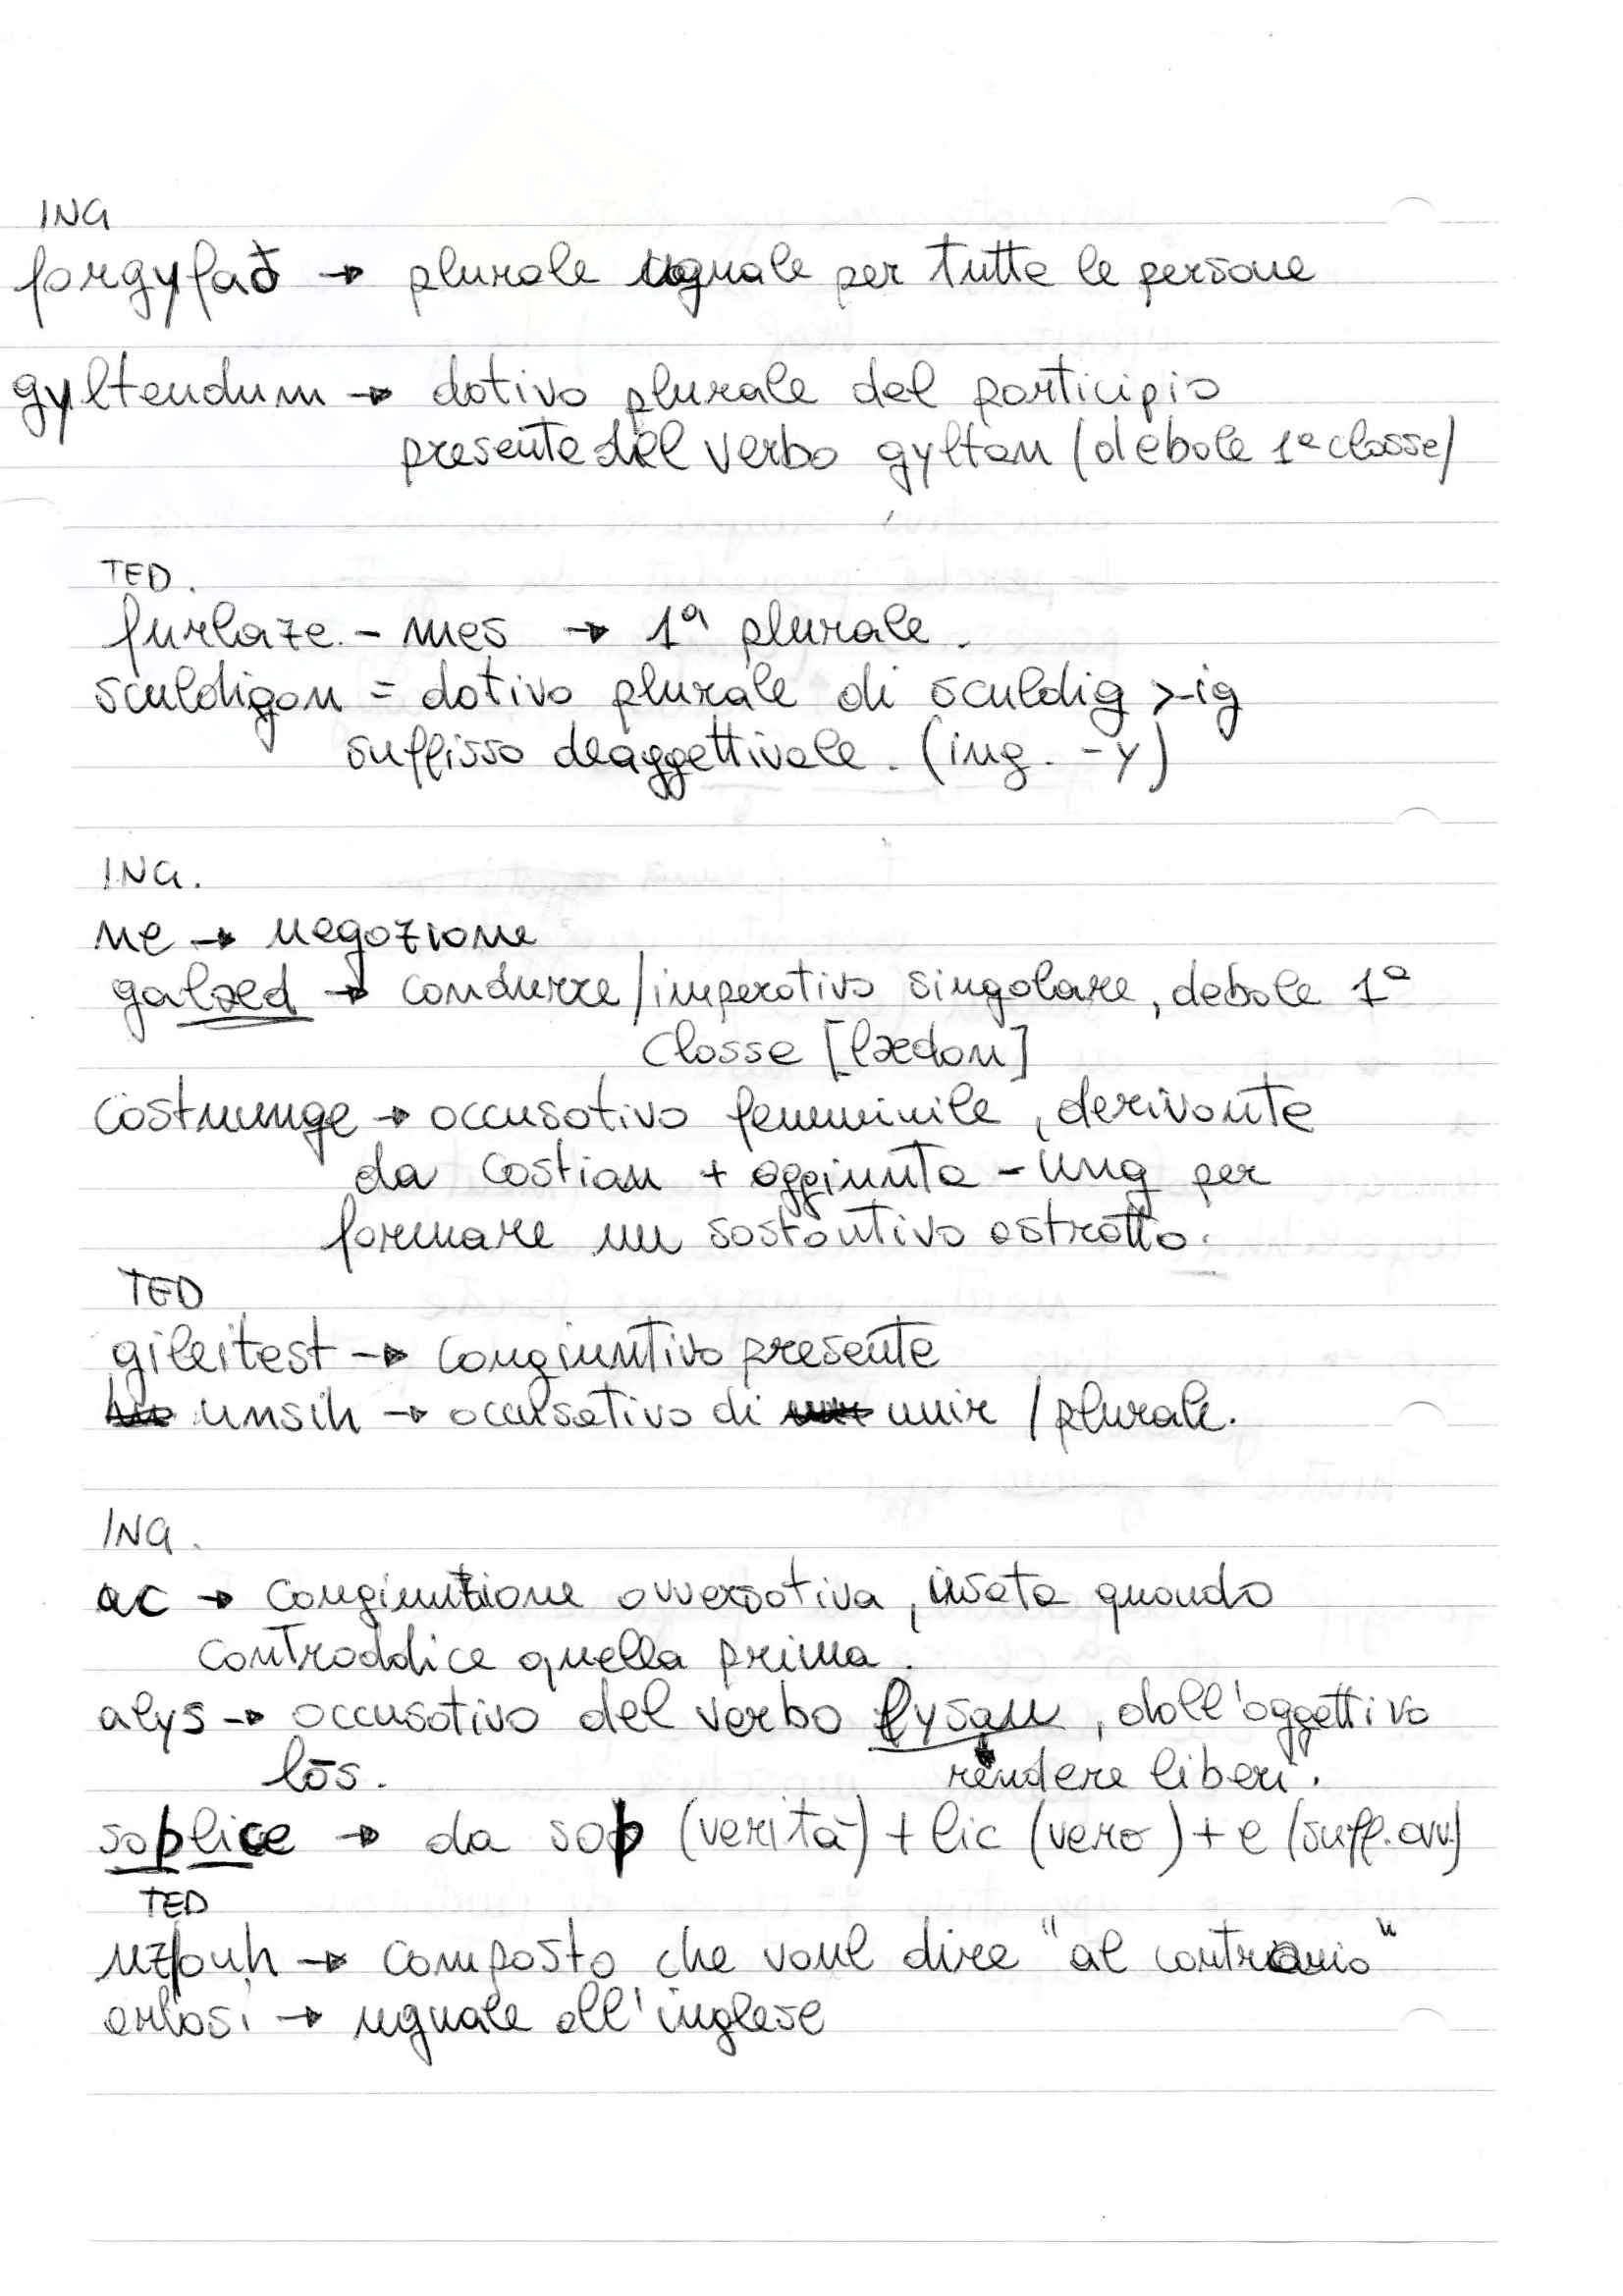 ING
forgyfað → plurale uguale per tutte le persone
gyltendum → dativo plurale del participio
presente del verbo gyltan (debole 1ª classe)
TED.
furlaze - mes → 1ª plurale.
sculdigon = dativo plurale di sculdig > -ig
suffisso deaggettivale. (ing. -y)
ING.
ne → negazione
galæd → condurre/imperativo singolare, debole 1ª
classe [lædon]
costnunge → accusativo femminile, derivante
da costian + aggiunta -ung per
formare un sostantivo astratto.
TED
gileitest → congiuntivo presente
unsih → accusativo di unir / plurale.
ING.
ac → congiunzione avversativa, usata quando
contraddice quella prima.
alys → accusativo del verbo lysan, dall'aggettivo
lōs. rendere liberi.
soþlice → da soþ (verità) + lic (vero) + e (suff. avv.)
TED
uzfouh → composto che voul dire "al contrario"
erlosi → uguale all'inglese